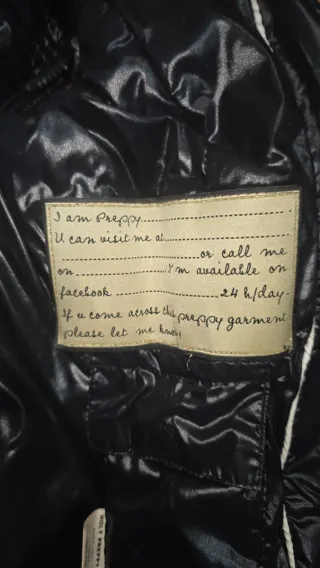 I am Preppy..............................
U can visit me at..............................
..............................or call me
on....................I'm available on
facebook....................24 h/day.
If u come across this preppy garment
please let me know!
HOLY PREPPY